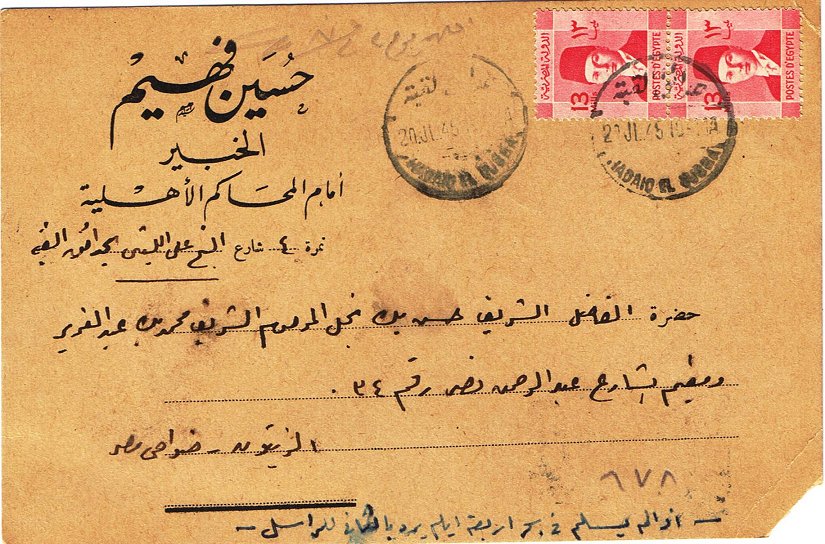 حسين فهيم
الخبير
أمام المحاكم الأهلية
نمرة ٤ شارع الشيخ على الليثى بحدائق القبه
١٣
الدولة المصرية
POSTES D'EGYPTE
13
MILLS
١٣
الدولة المصرية
POSTES D'EGYPTE
13
حدائق القبة
20 JL 45
HADAIQ EL QUBBA
حدائق القبة
20 JL 45
HADAIQ EL QUBBA
حضرة الفاضل الشريف حسن بك نجل المرحوم الشريف محمد بك عبد العزيز
ومقيم بشارع عبد الرحمن نصر رقم ٣٤ .
الزيتون - ضواحى مصر
٦٧٨
- إذا لم يسلم فى بحر اربعة ايام يرد بالثانى للراسل -